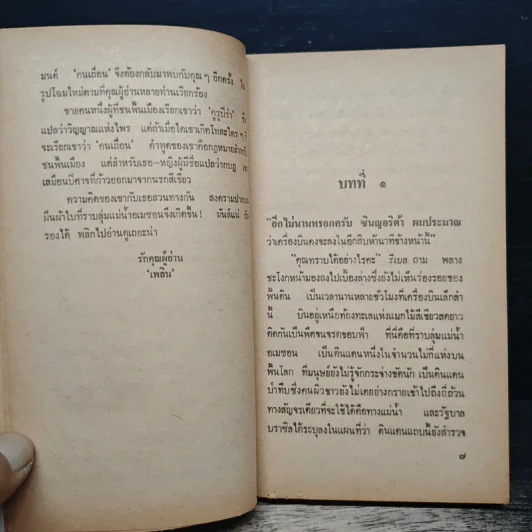 มนต์ 'คนเถื่อน' จึงต้องกลับมาพบกับคุณๆ อีกครั้ง ใน
รูปโฉมใหม่ตามที่คุณผู้อ่านหลายท่านเรียกร้อง
ชายคนหนึ่งผู้ที่ชนพื้นเมืองเรียกเขาว่า 'คูรูปิร่า' ซึ่ง
แปลว่าวิญญาณแห่งไพร แต่ถ้าเมื่อใดเขาเกิดโทสะใครๆ ก็
จะเรียกเขาว่า 'คนเถื่อน' คำพูดของเขาคือกฎหมายสำหรับ
ชนพื้นเมือง แต่สำหรับเธอ-หญิงผู้มีชื่อแปลว่ากบฏ เขา
เสมือนปีศาจที่ก้าวออกมาจากนรกสีเขียว
ความคิดของเขากับเธอสวนทางกัน สงคราม
ผืนผ้าใบที่ราบลุ่มแม่น้ำอเมซอนจึงเกิดขึ้น! มันส์แน่
รองได้ พลิกไปอ่านดูเถอะน่า
รักคุณผู้อ่าน
'เพลิน'
บทที่ ๑
"อีกไม่นานหรอกครับ ซินญอริต้า ผมประมาณ
ว่าเครื่องบินคงจะลงในอีกสิบห้านาทีข้างหน้านี้"
"คุณทราบได้อย่างไรคะ" รีเบล ถาม พลาง
ชะโงกหน้ามองลงไปเบื้องล่างซึ่งยังไม่เห็นร่องรอยของ
พื้นดิน เป็นเวลานานหลายชั่วโมงที่เครื่องบินเล็กลำ
นี้ บินอยู่เหนือท้องทะเลแห่งแมกไม้สีเขียวสดยาว
ติดกันเป็นพืดจนจรดขอบฟ้า ที่นี่คือที่ราบลุ่มแม่น้ำ
อเมซอน เป็นดินแดนหนึ่งในจำนวนไม่กี่แห่งบน
พื้นโลก ที่มนุษย์ยังไม่รู้จักกระจ่างชัดนัก เป็นดินแดน
ป่าทึบซึ่งคนผิวขาวยังไม่เคยย่างกรายเข้าไปถึงถี่ถ้วน
ทางสัญจรเดียวที่จะใช้ได้คือทางแม่น้ำ และรัฐบาล
บราซิลได้ระบุลงในแผนที่ว่า ดินแดนแถบนี้ยังสำรวจ
๗